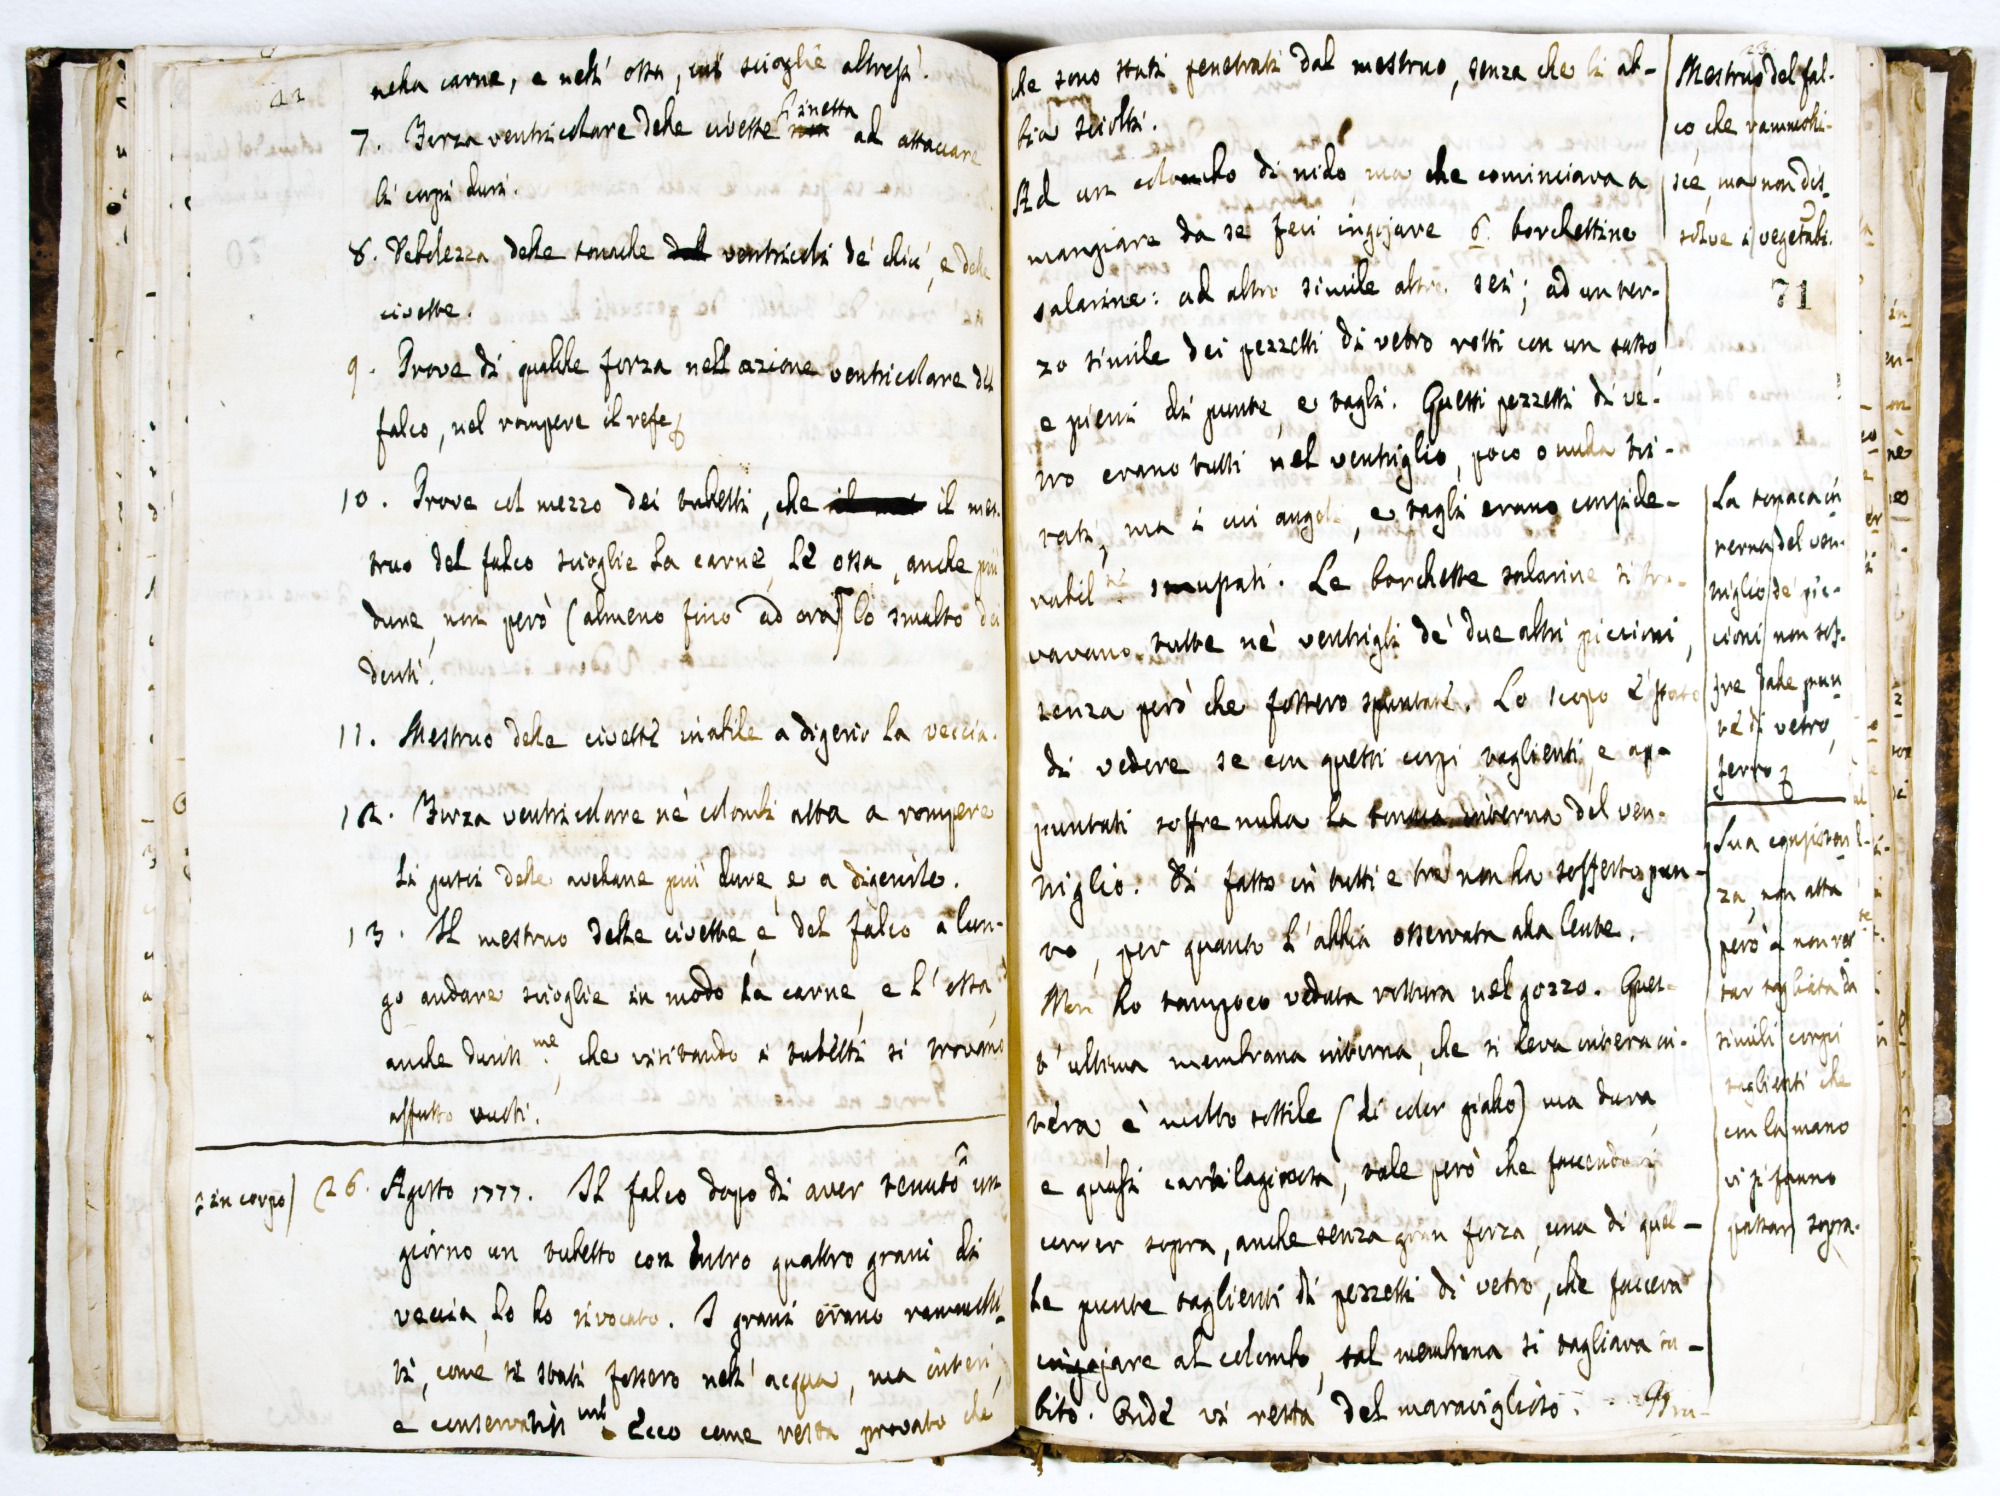 22
nella carne, e nell' ossa, col scioglie altresì.
7. Forza ventricolare delle civette inetta ad attaccare
li corpi duri.
8. Debolezza delle tonache del ventricoli de' chiù, e delle
civette.
9. Prove di qualche forza nell azione ventricolare del
falco, nel rompere il refe
10. Prove col mezzo dei tubetti, che il mes-
truo del falco scioglie la carne, le ossa, anche più
dure, non però (almeno fino ad ora) lo smalto dei
denti.
11. Mestruo delle civette inabile a digerir la veccia.
12. Forza ventricolare ne' colombi atta a rompere
li gusci delle avellane più dure, e a digerirle.
13. Il mestruo delle civette, e del falco a lun-
go andare scioglie in modo la carne, e l' ossa,
anche duriss.me, che visitando i tubetti si trovano
affatto vuoti.
in corpo)
26. Agosto 1777. Il falco dopo di aver tenuto un
giorno un tubetto con dentro quattro grani di
veccia, lo ho rivocato. I grani erano rammolli-
ti, come se stati fossero nell' acqua, ma interi,
e conservatiss.mi Ecco come resta provato che
23
che sono stati penetrati dal mestruo, senza che li ab-
bia sciolti.
Ad un colombo di nido ma che cominciava a
mangiare da se feci ingojare 6. borchettine
salarine: ad altro simile altre sei; ad un ter-
zo simile dei pezzetti di vetro rotti con un sasso
e pieni di punte, e tagli. Questi pezzetti di ve-
tro erano tutti nel ventriglio, poco o nulla tri-
tati, ma i cui angoli, e tagli erano conside-
rabil.te smupati. Le borchette salarine si tro-
vavano tutte ne' ventrigli de' due altri piccioni,
senza però che fossero spuntate. Lo scopo è stato
di vedere se con questi corpi taglienti, e ap-
puntati soffre nulla la tonaca interna del ven-
triglio. Di fatto in tutti e tre non ha sofferto pun-
to, per quanto l' abbia osservata alla lente.
Non ho tampoco veduta rottura nel gozzo. Ques-
t' ultima membrana interna, che si leva intera in-
tera, è molto sottile (di color giallo) ma dura,
e quasi cartilaginosa, tale però che facendovi
correr sopra, anche senza gran forza, una di quel-
le punte taglienti di pezzetti di vetro, che faceva
ingojare al colombo, tal membrana si tagliava su-
bito. Onde vi resta del maraviglioso.
Mestruo del fal-
co, che rammolli-
sce, ma non dis-
solve i vegetabi.
71
La tonaca in
terna del ven-
triglio de' pic-
cioni non sof-
fre dalle pun
te di vetro,
ferro
Sua consisten
za, non atta
però a non res
tar tagliata da
simili corpi
taglienti che
con la mano
vi si fanno
passar sopra.